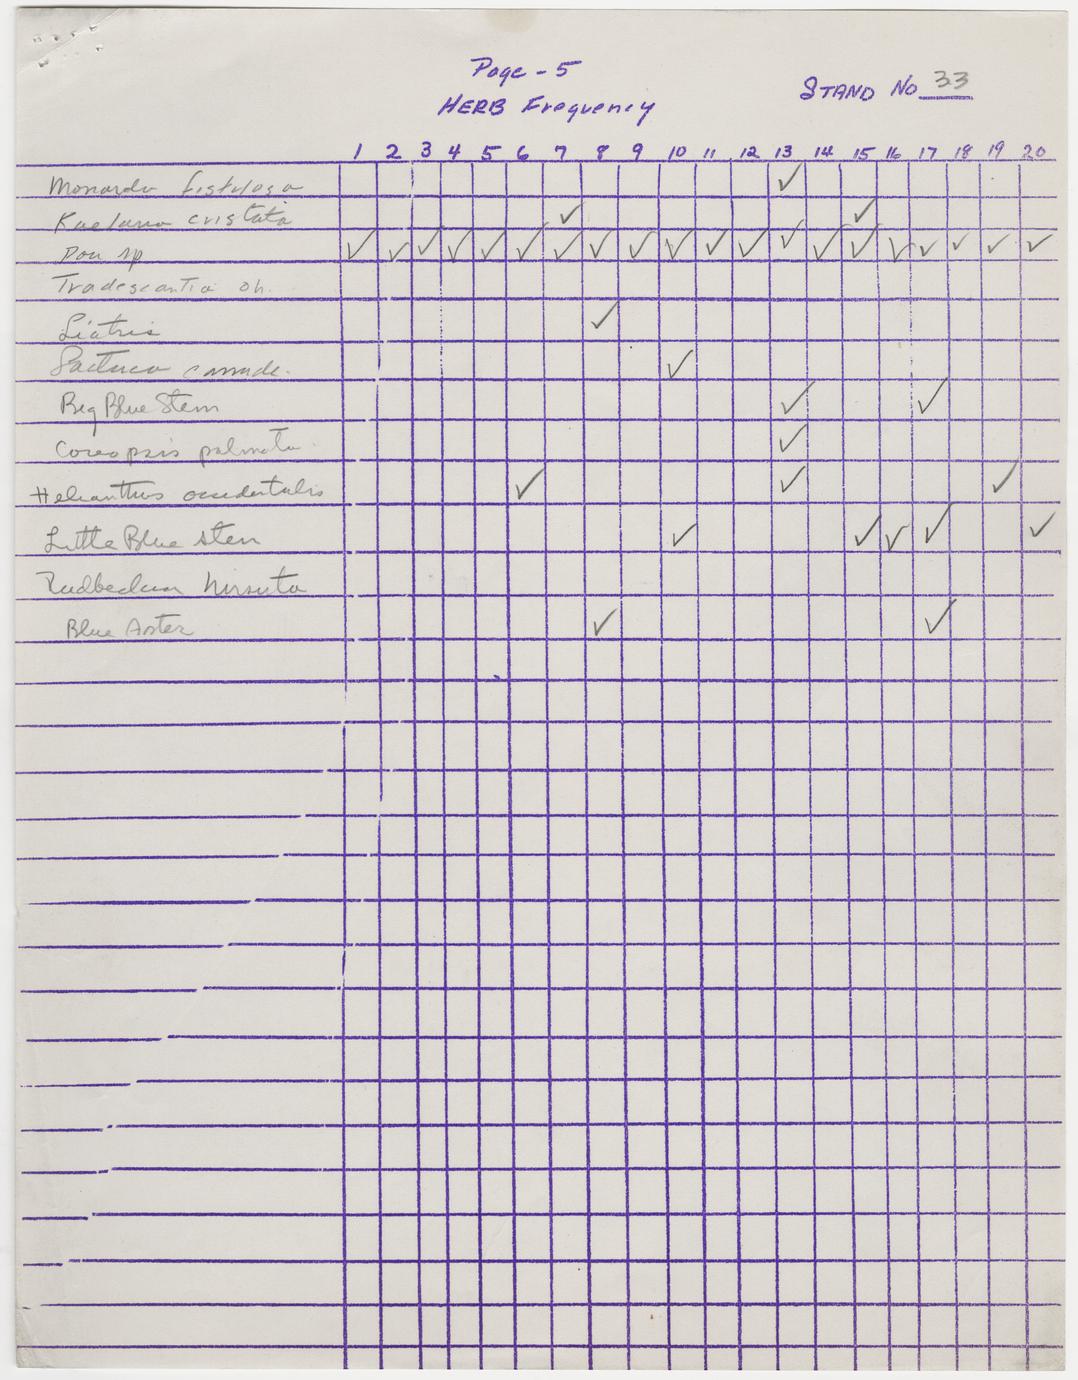 Page - 5
HERB Frequency
STAND No 33
1 2 3 4 5 6 7 8 9 10 11 12 13 14 15 16 17 18 19 20
Monarda fistulosa ✓
cristata ✓ ✓
sp ✓ ✓ ✓ ✓ ✓ ✓ ✓ ✓ ✓ ✓ ✓ ✓ ✓ ✓ ✓ ✓ ✓ ✓ ✓ ✓
Tradescantia oh.
Liatris ✓
Lactuca ✓
Big Blue Stem ✓ ✓
Coreopsis palmata ✓
Helianthus occidentalis ✓ ✓ ✓
Little Blue stem ✓ ✓ ✓ ✓ ✓
hirsuta
Blue Aster ✓ ✓